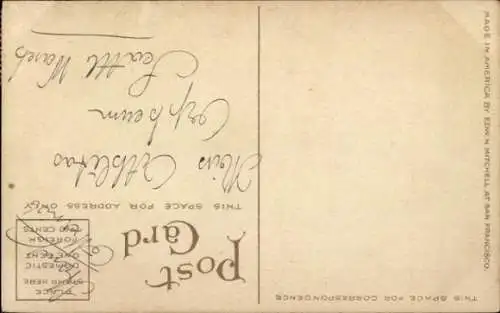 Post
Card
PLACE
STAMP HERE
DOMESTIC
ONE CENT
FOREIGN
TWO CENTS
THIS SPACE FOR CORRESPONDENCE
THIS SPACE FOR ADDRESS ONLY
Miss
Orpheum
Seattle Wash
MADE IN AMERICA BY EDW. H. MITCHELL AT SAN FRANCISCO.